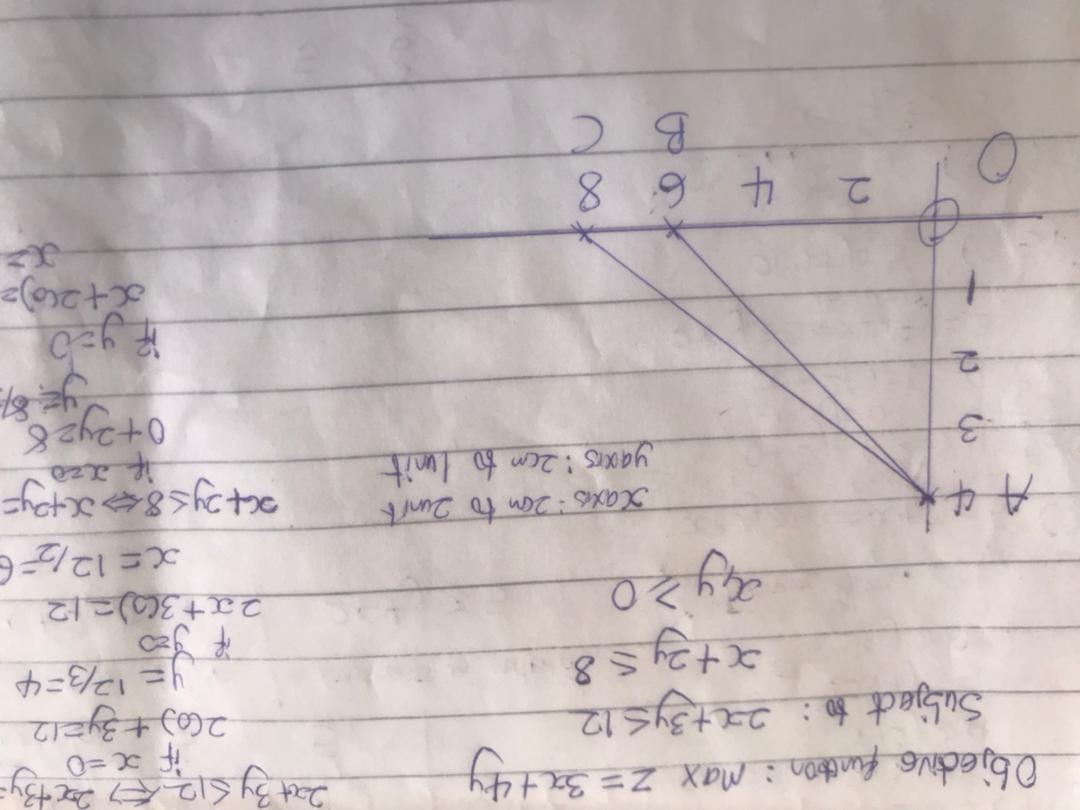 Objective function: Max Z = 3x + 4y
Subject to: 2x + 3y ≤ 12
x + 2y ≤ 8
x, y ≥ 0
xaxis: 2cm to 2unit
yaxis: 2cm to 1unit
A 4
3
2
1
O 2 4 6 8
B C
2x + 3y ≤ 12 ⇔ 2x + 3y =
if x = 0
2(0) + 3y = 12
y = 12/3 = 4
if y = 0
2x + 3(0) = 12
x = 12/2 = 6
x + 2y ≤ 8 ⇔ x + 2y =
if x = 0
0 + 2y = 8
y = 8/
if y = 0
x + 2(0) =
x =